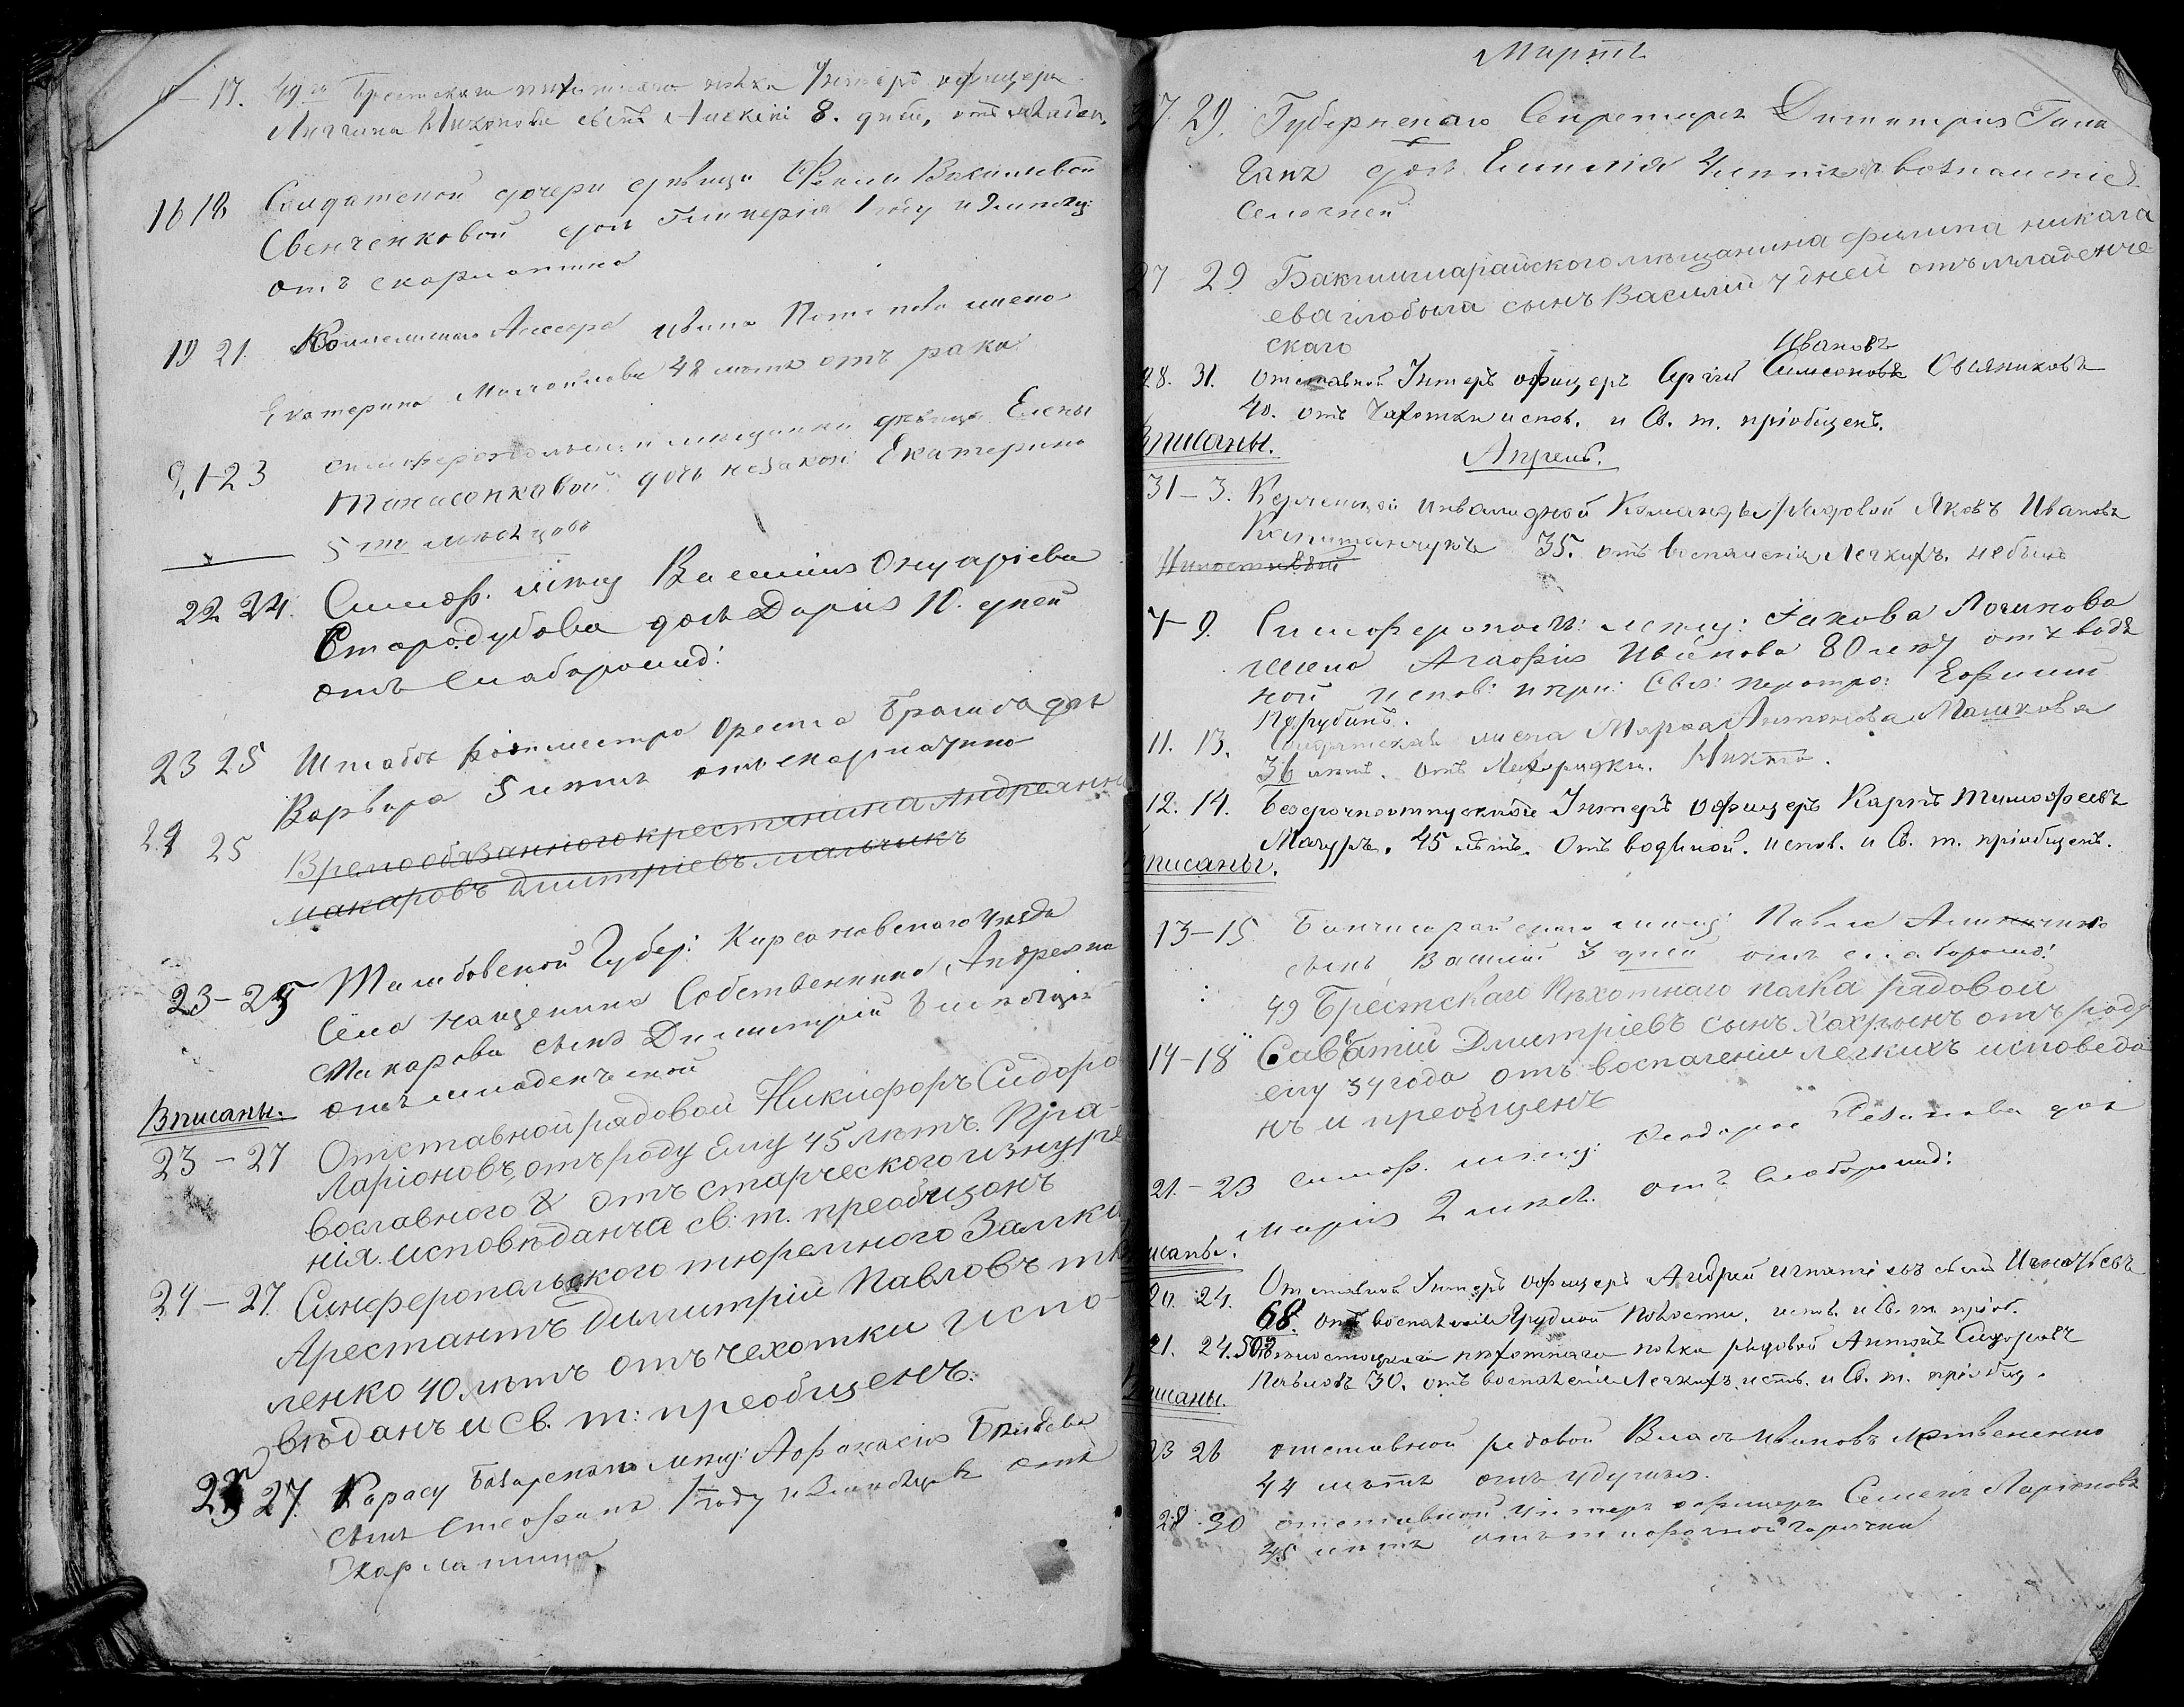 17. 49го Брестскаго пѣхотнаго полка Унтеръ офицера
Никонова сынъ Алексѣй 8. дней, отъ младен.
16 18 Солдатской дочери дѣвицы Ѳеклы Васильевой
Свенченковой дочь Гликерія 1 году и 2 мѣсяц:
отъ скарлатина
19 21. Коллежскаго Ассесора Ивана Потапова жена
Екатерина Михайлова 48 лѣтъ отъ рака
21-23 симферопольской мѣщанки дѣвицы Елены
дочь незакон: Екатерина
5 ти мѣсяцовъ
22 24. Симоф. мѣщ Василія Онуфріева
Стародубова дочь Дарія 10. дней
отъ слаборожд:
23 25 Штабсъ ротмистра Ореста Браилба дочь
Варвара 5 лѣтъ отъ скарлатина
24 25 Времообязанного крестянина Андреяна
макаровъ Дмитріевъ мальчикъ
23-25 Тамбовской Губер: Кирсановскаго уѣзда
Села Нащекина Собственника Андреяна
Макарова сынъ Димитрій 8 мѣсяцовъ
отъ младенческой
Вписаны.
23 - 27 Отставной рядовой Никифоръ Сидоро
Ларіоновъ, отъ роду Ему 45 лѣтъ. Пра-
вославного & отъ старческого изнуре
нія. исповѣданъ и св: т. преобщонъ
24 - 27. Симферопальского тюремного Замка
Арестантъ Димитрій Павловъ тк
ленко 40. лѣтъ отъ чехотки испо-
вѣданъ и Св. т: преобщенъ.
25 27. Карасу базарскаго мѣщ: Афанасія
сынъ Стефанъ 1 году и 8 мѣсяцовъ отъ
Скарлатина
Мартъ
27. 29. Губернскаго Секретаря Димитрія Гала
гана дочь Емилія 4 лѣтъ отъ воспаленія
27 29 Бакчишарайского мѣщанина филипа никала
ева глобыла сынъ Василій 7 дней отъ младенче
ского
Ивановъ
28. 31. Отставной Унтеръ офицеръ Сергій Симеоновъ Овсяниковъ
40. отъ Чахотки испов. и Св. т. пріобщенъ.
Вписаны.
Апрель.
31 - 3. Керченской инвалидной Команды рядовой Яковъ Ивановъ
Капитанчукъ 35. отъ воспаленія Легкихъ. не былъ
7-9. Симоферополь: мѣщ: Іакова Логинова
жена Агафія Иванова 80 лѣтъ отъ водя
ной испов: и при: Свя: протро: Ефимий
Порубинъ.
11. 13. Солдатская жена Марѳа Антонова Машкова
36 лѣтъ. Отъ Лихорадки. Никто.
12. 14. безсрочноотпускной Унтеръ Офицеръ Карпъ Тимофеевъ
Мачуръ, 45 лѣтъ. Отъ водяной. испов. и Св. т. пріобщенъ.
Вписаны.
13-15 Бакчисарайскаго мѣщ: Павла
сынъ Василій 3 дней отъ слаборожд:
49 Брестскаго пѣхотнаго полка рядовой
14-18 Саватій Дмитріевъ сынъ Хахрынъ отъ роду
ему 34 года отъ воспаленіи легкихъ исповеда
нъ и преобщенъ
21. - 23 симоф. мѣщ: Ѳеодора Резанова дочь
Марія 2 мѣс. отъ Слаборожд:
Вписаны.
20. 24. Отставной Унтеръ Офицеръ Андрей Игнатіевъ сынъ Игнатьевъ
68. отъ воспаленія Грудной Полости. испов. и Св. т. пріоб.
21. 24. 50 Бѣлостоцкаго пѣхотнаго полка рядовой Антонъ Сидоровъ
Павловъ 30. отъ воспаленія Легкихъ. испов. и Св. т. пріобщ.
Вписаны.
23 26 отставной рядовой Власъ Ивановъ
44 лѣтъ отъ удушья.
28 30 отставной Унтеръ офицеръ Семенъ Ларіоновъ
45 лѣтъ отъ тифозной горячки